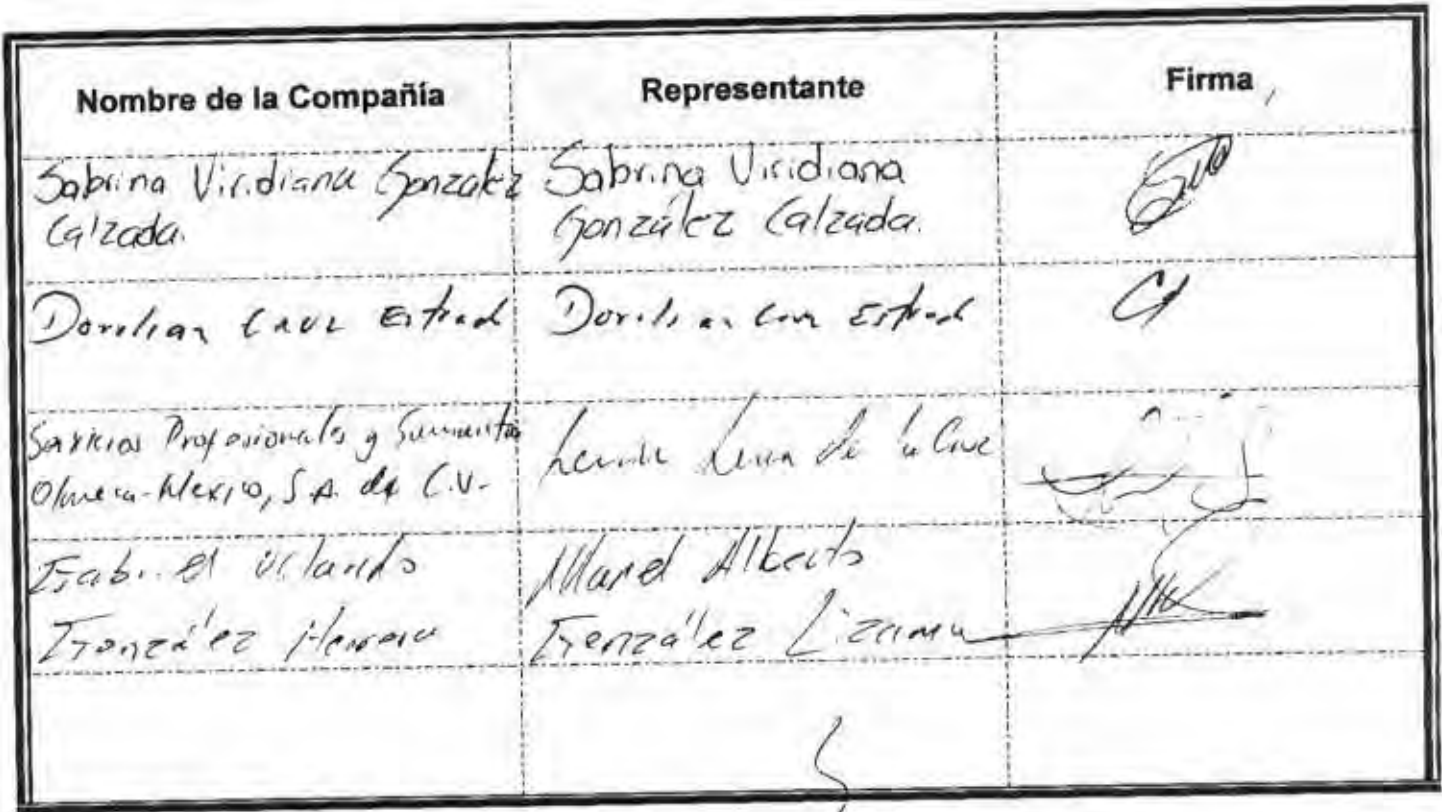 Nombre de la Compañía
Representante
Firma
Sabrina Viridiana Gonzalez
Calzada.
Sabrina Viridiana
González Calzada.
Dorilian Cruz Estrad
Dorilian Cruz Estrad
Servicios Profesionales y Suministros
Olmeca-Mexico, S.A. de C.V.
de la Cruz
Gabriel Orlando
González Herrera
Manel Alberto
González Lizama